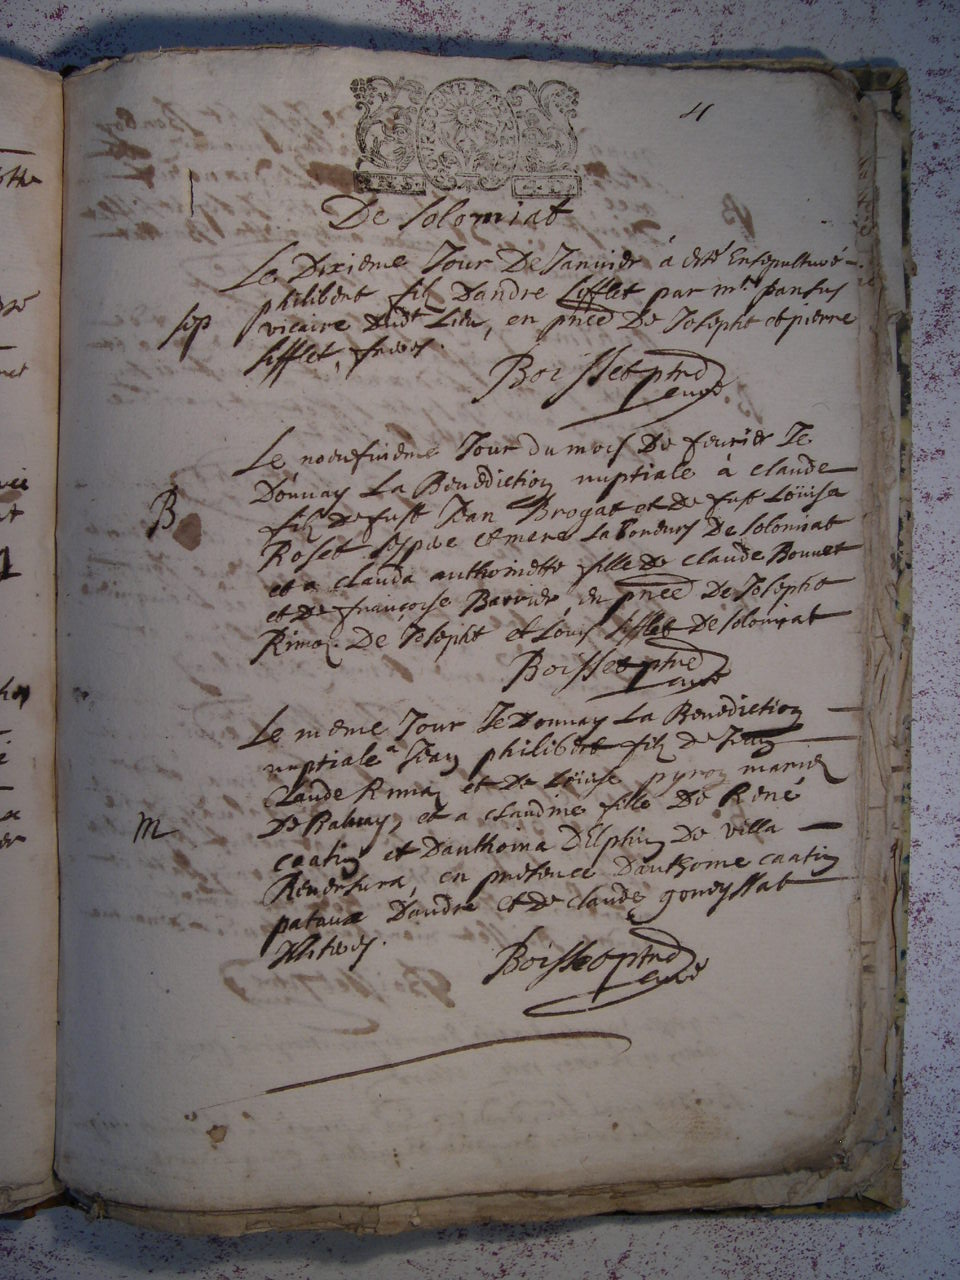 4
De Solomiat
Le Dixieme Jour De Janvier à esté Ensepulturé
philibert filz Dandre Sifflet par mre pansus
sep
vicaire dudt Lieu, en pnce De Joseph et pierre
Sifflet, freres.
Boisset ptre
curé
Le noeufvieme Jour du mois De fevrier Je
Donnay La Benediction nuptiale à claude
B
filz de fust Jean Brogat et de fust Loüise
Roset ses pere et mere Laboeurs De Solomiat
et a clauda anthoinette fille de claude Bouvet
et de françoise Barrier, en pnce De Joseph
De Joseph et Louis Sifflet De Solomiat
Boisset ptre
curé
Le meme Jour Je Donnay La Benediction
nuptiale a Jean philibert filz de Jean
Claude et de Loüise pyron mariez
M
et a claudine fille De René
caatin et Danthoina Delphin De villa
Reversura, en presence Danthome caatin
Dandre et de claude
Boisset ptre
curé